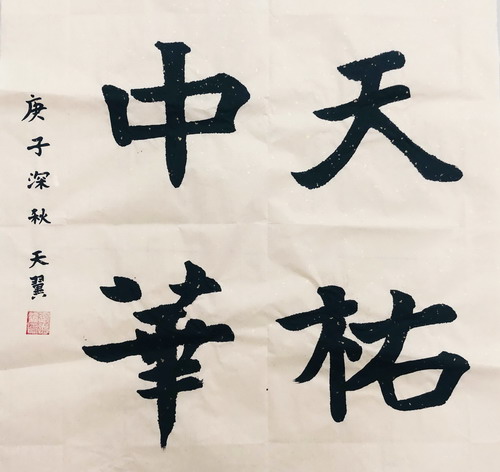 天祐
中華
庚子深秋 天翼